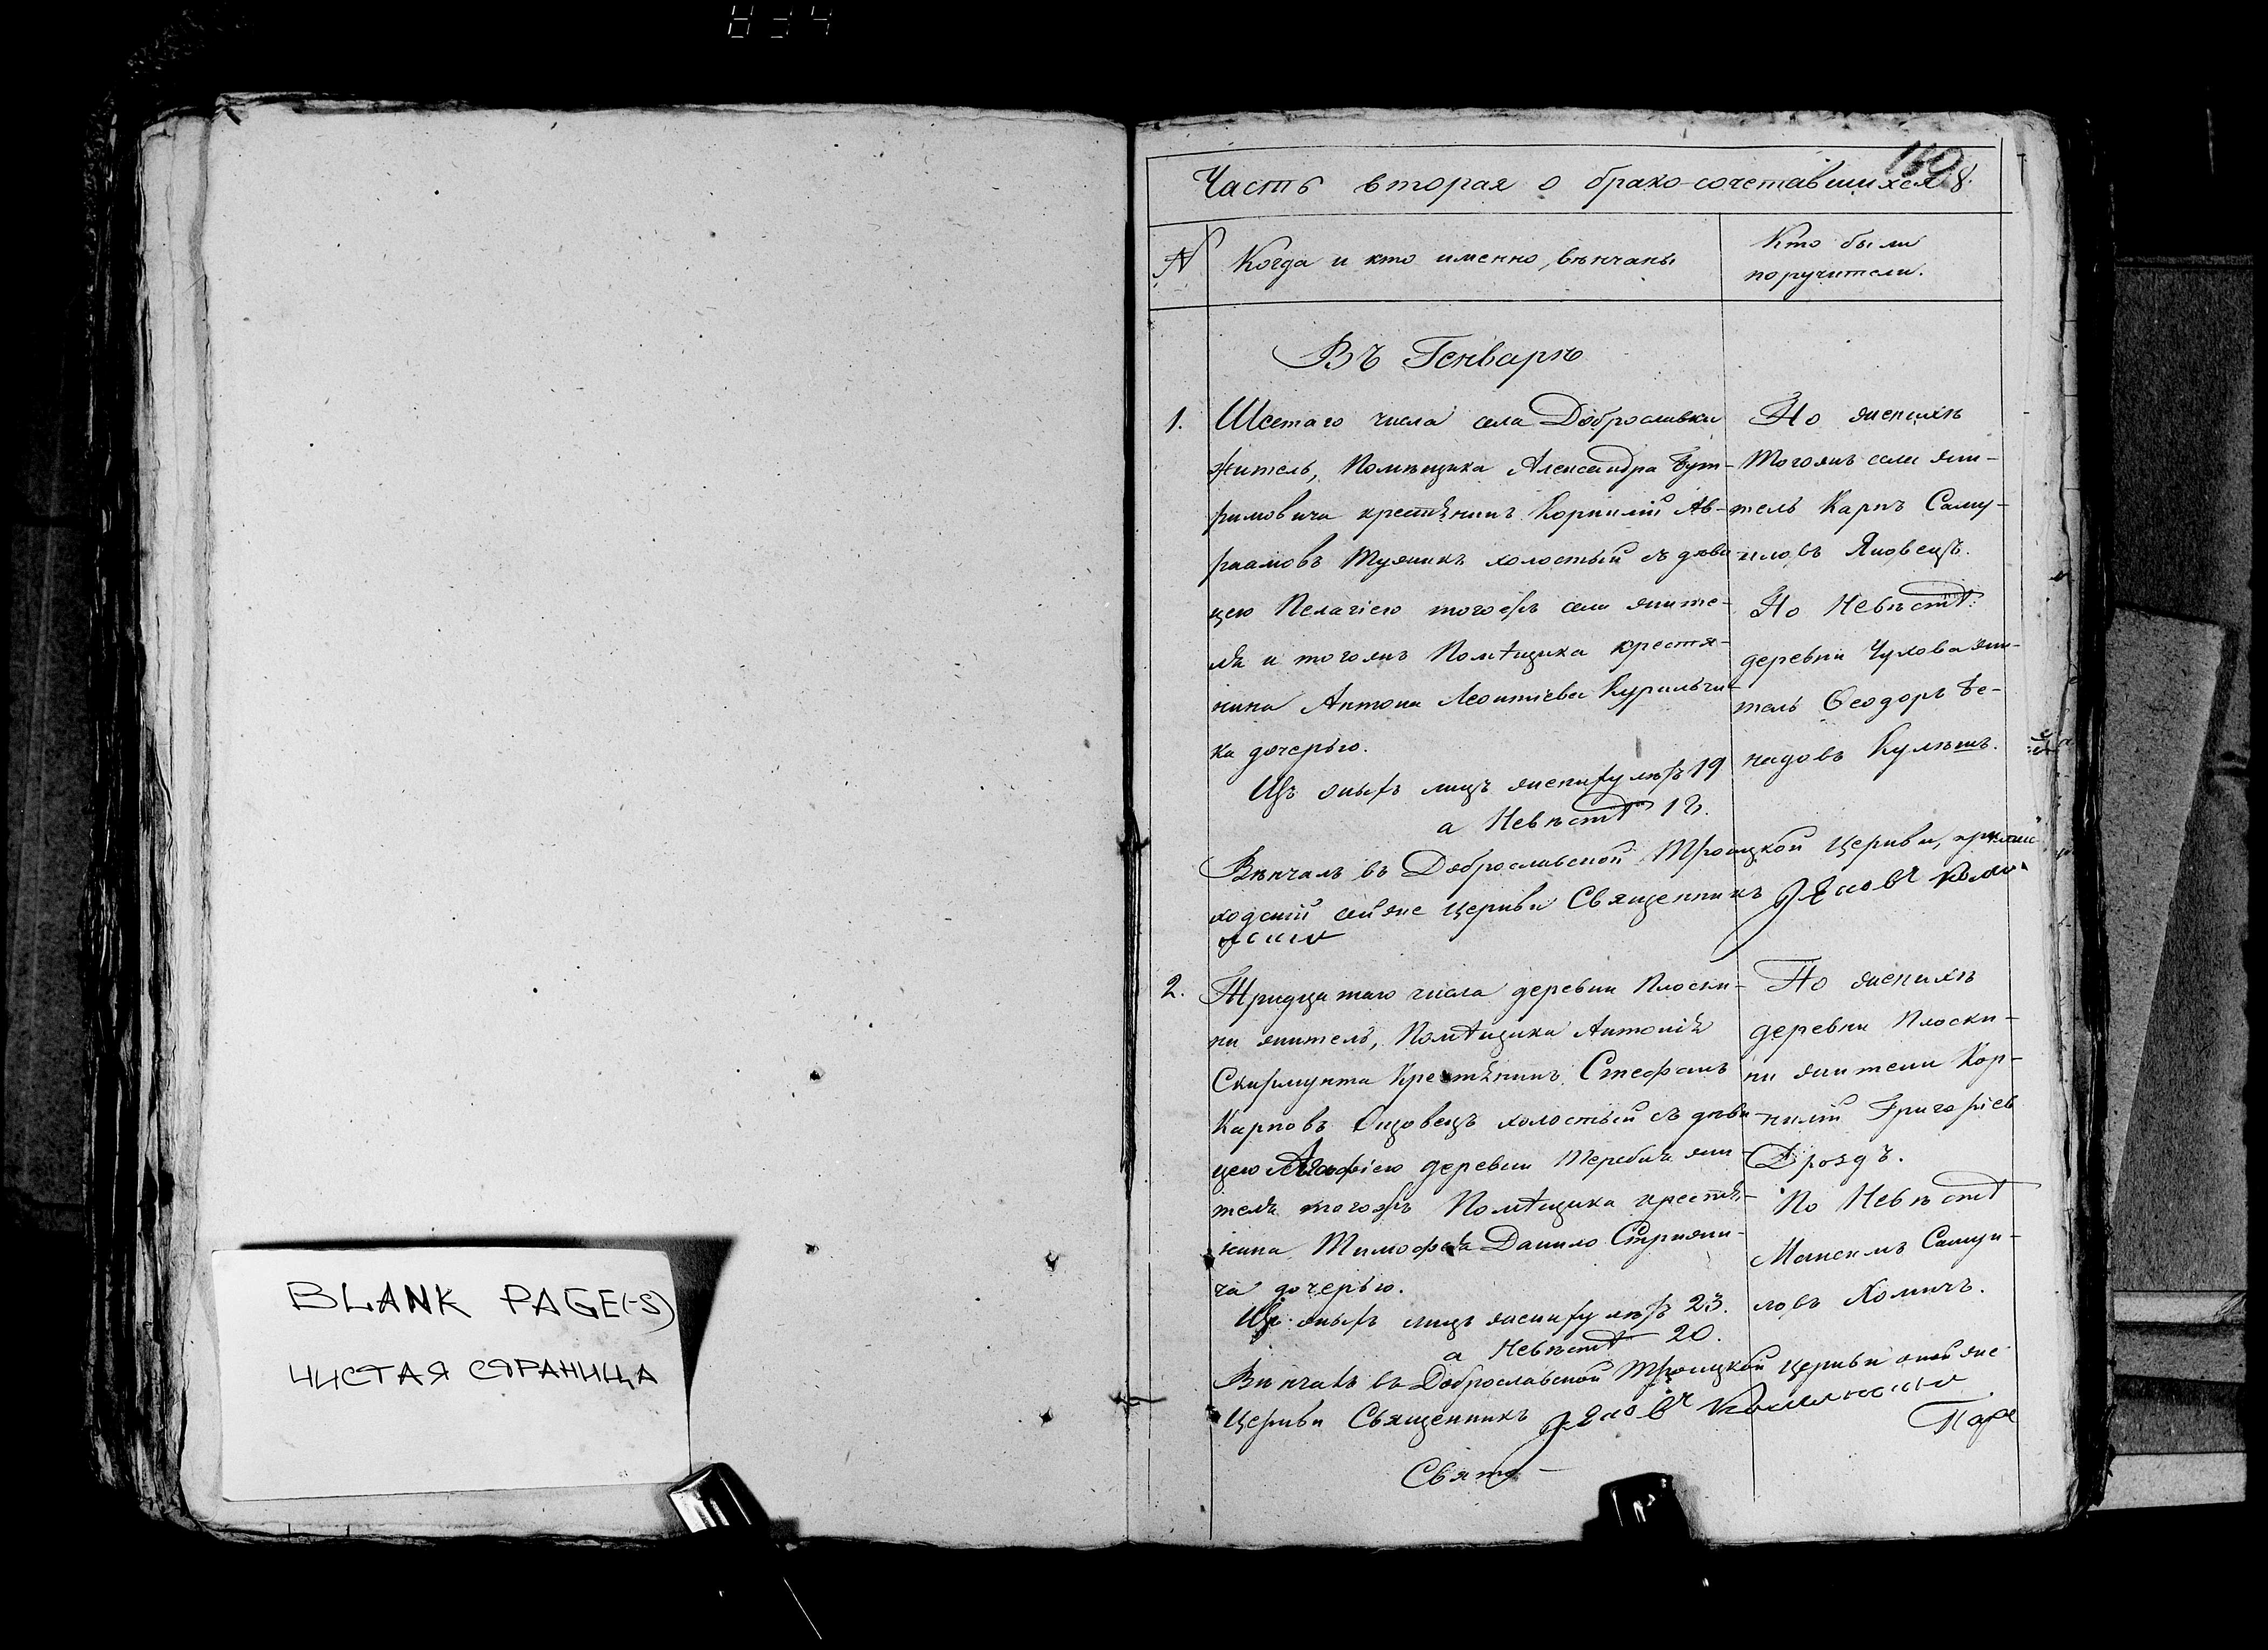 Часть вторая о брако-сочетавшихся 8.
№ Когда и кто именно, вѣнчаны
Кто были
поручители.
Въ Генварѣ
1. Шестаго числа села Доброславки
житель, Помѣщика Александра Бут-
римовича крестянинъ Корнилій Ав-
раамовъ холостый съ дѣви-
цею Пелагіею тогожъ села жите-
ля и тогожъ Помѣщика крестя-
нина Антона Леонтіева Курильчи-
ка дочерью.
Изъ оныхъ лицъ жениху лѣтъ 19
а Невѣстѣ 18.
Вѣнчалъ въ Доброславской Троицкой Церкви,
ходскій сей же церкви Священникъ Яковъ
По женихѣ
тогожъ села жи-
тель Карпъ Саму-
иловъ Яковецъ.
По Невѣстѣ
деревни Чухова жи-
тель Ѳеодоръ Ге-
надовъ Кулешъ.
2. Тридцатаго числа деревни Плоски-
ни житель, Помѣщика Антонія
Скирмунта Крестянинъ Стефанъ
Карповъ холостый съ дѣви-
цею Агафіею деревни Теребича жи-
теля тогожъ Помѣщика крестя-
нина Тимофея Данило
ча дочерью.
Изъ оныхъ лицъ жениху лѣтъ 23.
а Невѣстѣ 20.
Вѣнчалъ въ Доброславской Троицкой церкви оной же
Церкви Священникъ Яковъ
По женихѣ
деревни Плоски-
ни жители Кор-
нилій Григоріев
Дроздъ.
По Невѣстѣ
Максимъ Самуи-
ловъ Хомичъ.
Свято-
BLANK PAGE(-S)
ЧИСТАЯ СТРАНИЦА